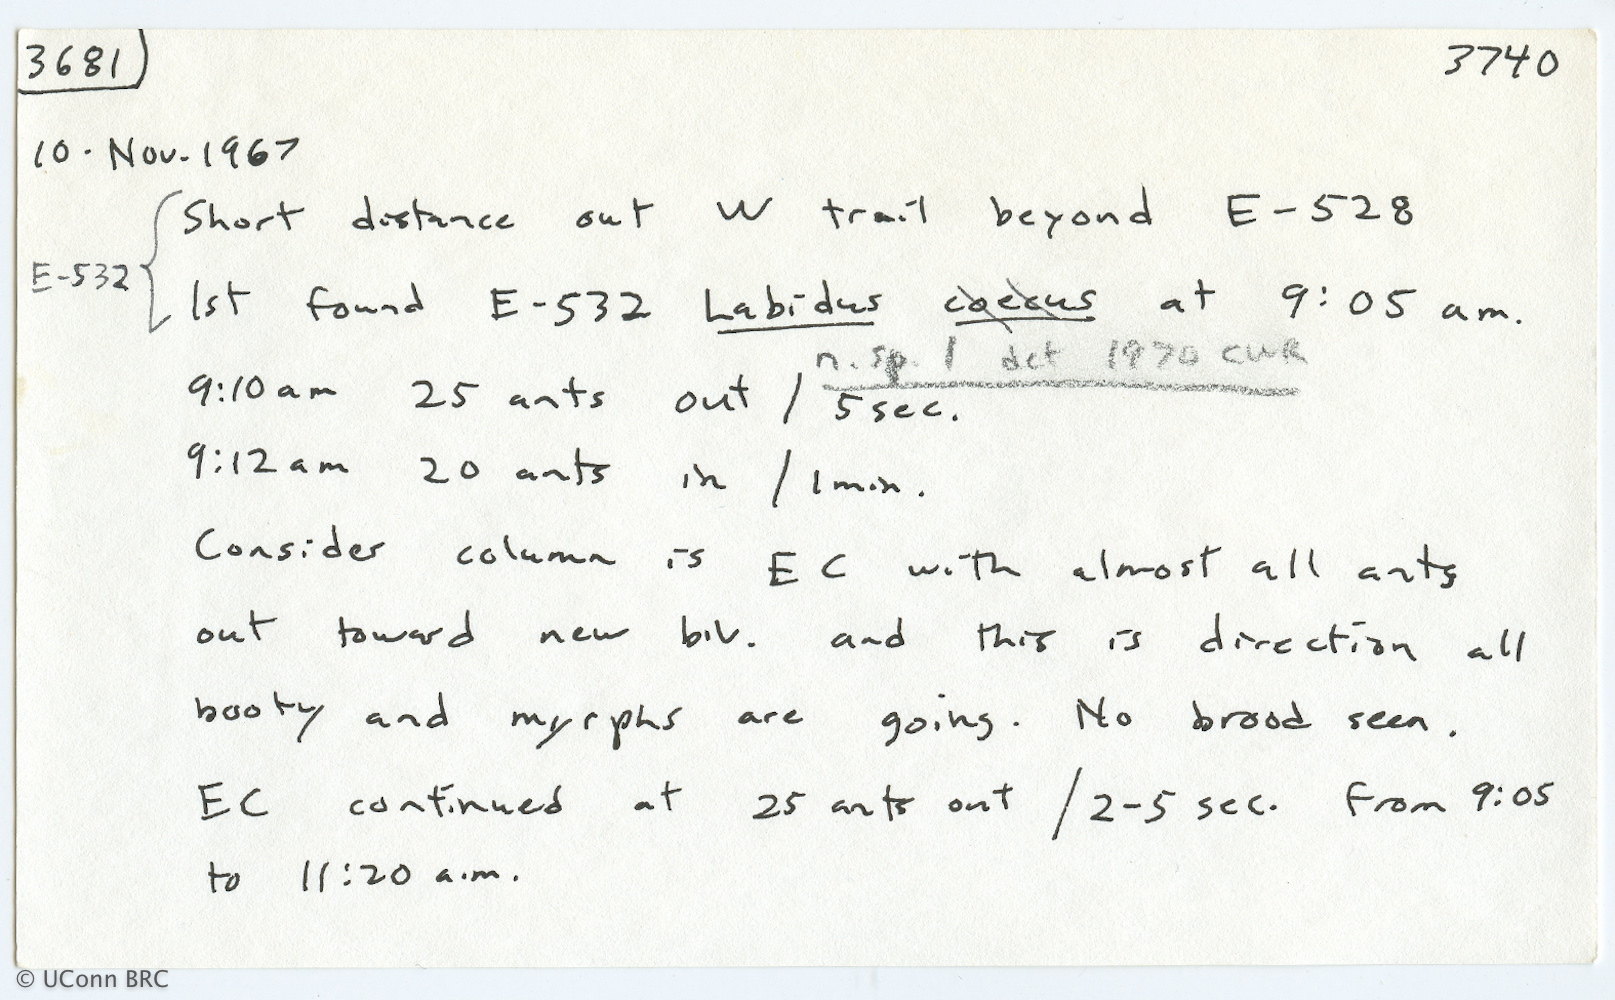 3681
3740
10. Nov. 1967
Short distance out W trail beyond E-528
E-532
1st found E-532 Labidus coecus at 9:05 am.
n. sp. 1 det 1970 CWR
9:10 am 25 ants out / 5 sec.
9:12 am 20 ants in / 1 min.
Consider column is EC with almost all ants
out toward new biv. and this is direction all
booty and myrphs are going. No brood seen.
EC continued at 25 ants out / 2-5 sec. from 9:05
to 11:20 a.m.
© UConn BRC